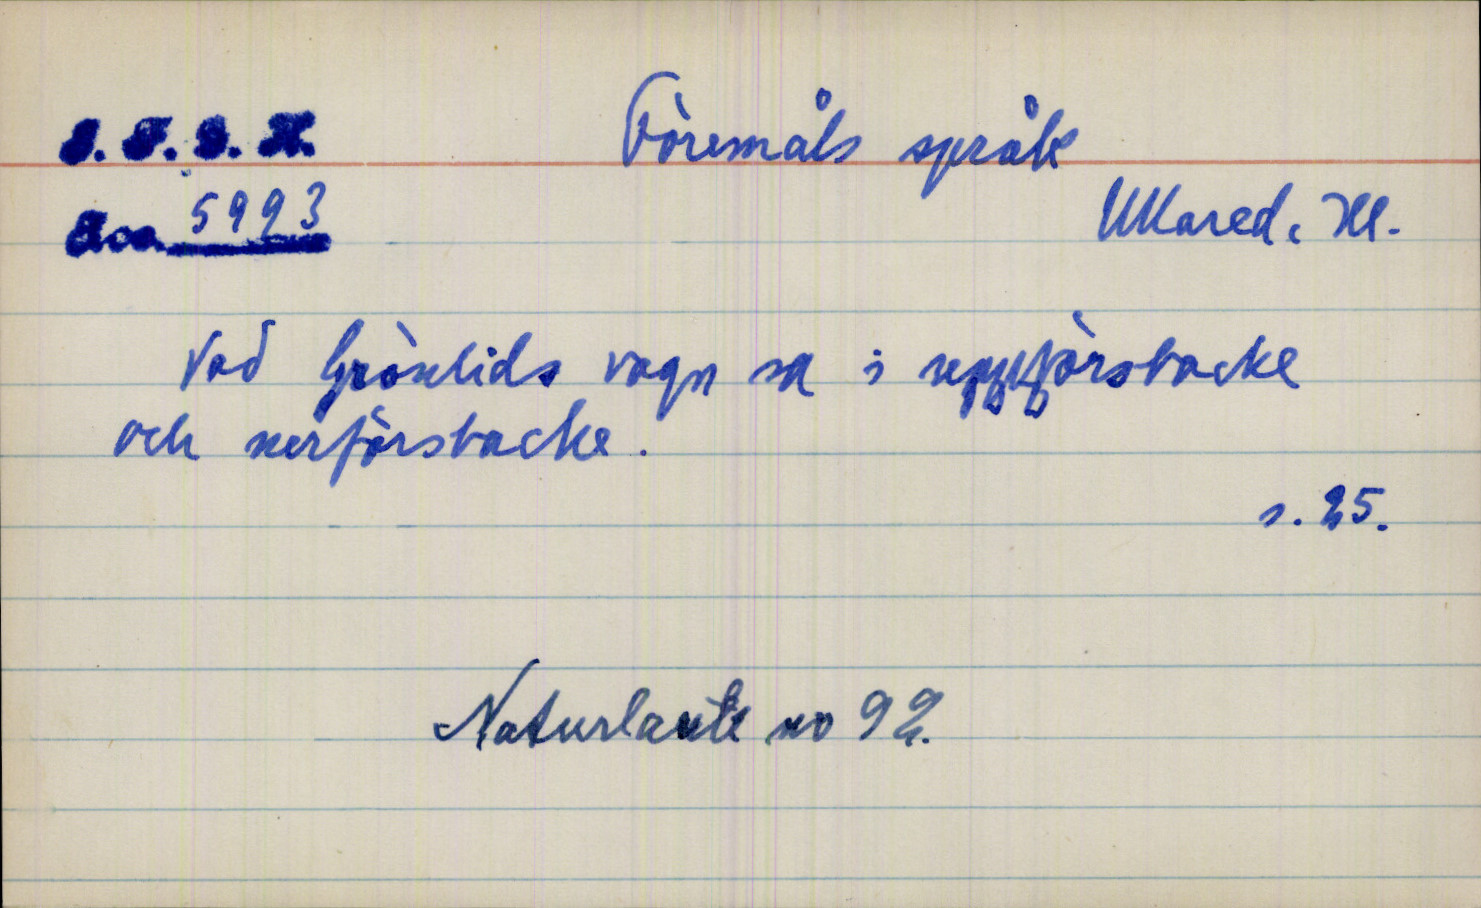 I. F. G. H.
Föremåls språk
Acc. 5993
Ullared, Hl.
Vad Grönlids vagn sa i uppförsbacke
och nerförsbacke.
s. 25.
Naturlaute no 92.